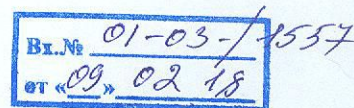 Вх.№ 01-03-/1557
от «09» 02 18